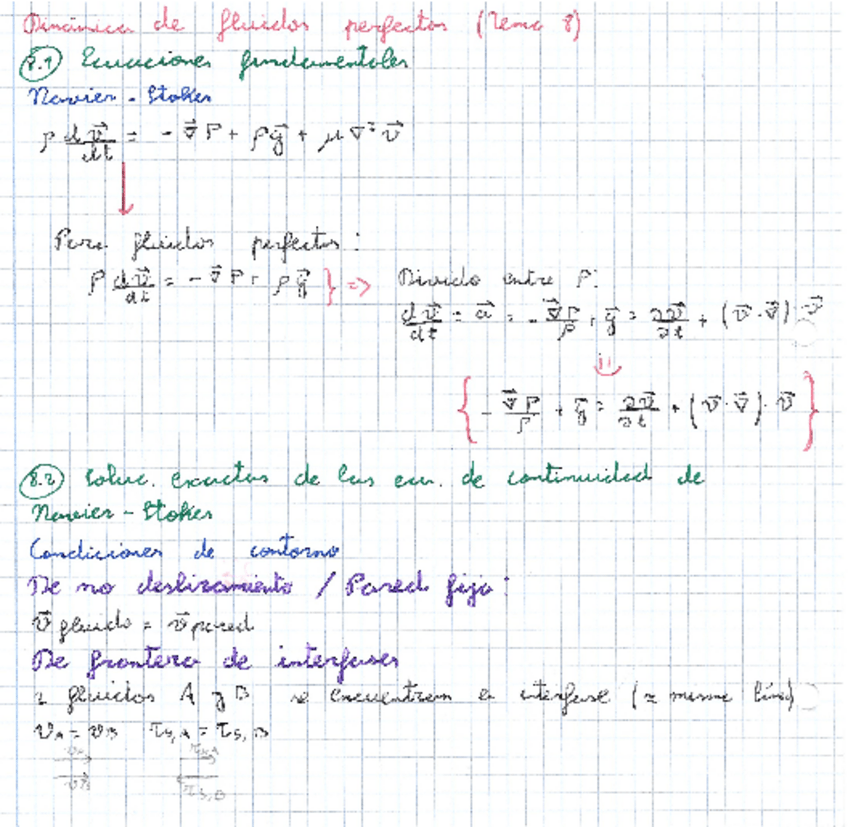 Dinámica de fluidos perfectos (Tema 8)
8.1 Ecuaciones fundamentales
Navier-Stokes
ρ dv⃗/dt = - ∇⃗P + ρg⃗ + μ∇²v⃗
Para fluidos perfectos:
ρ dv⃗/dt = - ∇⃗P + ρg⃗ } => Divido entre ρ:
dv⃗/dt = a⃗ = - ∇⃗P/ρ + g⃗ = ∂v⃗/∂t + (v⃗·∇⃗)·v⃗
{ - ∇⃗P/ρ + g⃗ = ∂v⃗/∂t + (v⃗·∇⃗)·v⃗ }
8.2 Soluc. exactas de las ecu. de continuidad de
Navier-Stokes
Condiciones de contorno
De no deslizamiento / Pared fija:
v⃗ fluido = v⃗ pared
De frontera de interfases
2 fluidos A y B se encuentran en interfase (≈ misma línea)
vA = vB τS,A = τS,B
vA τS,A
vB τS,B